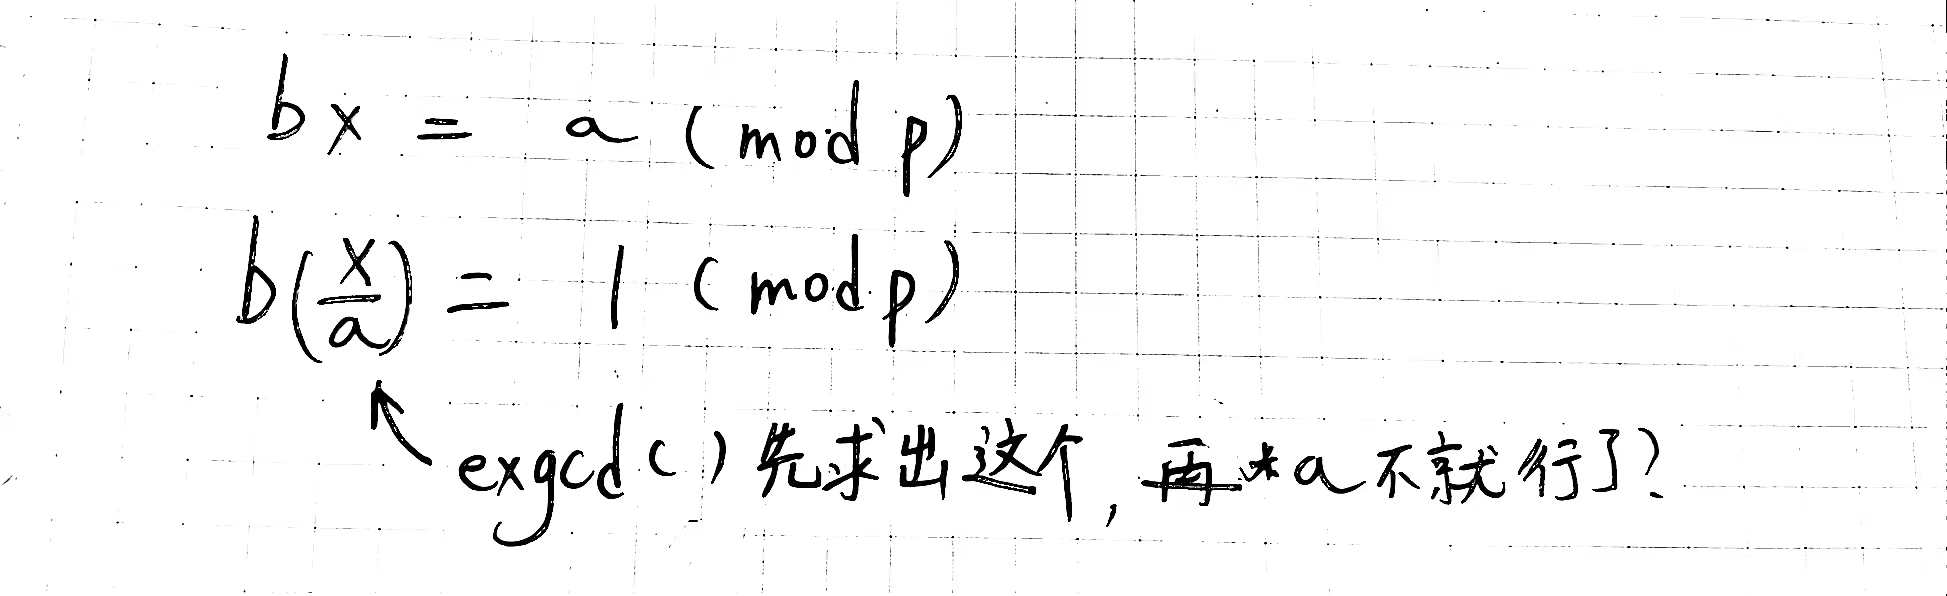 bx = a (mod p)
b(x/a) = 1 (mod p)
exgcd() 先求出这个, 再*a 不就行了?